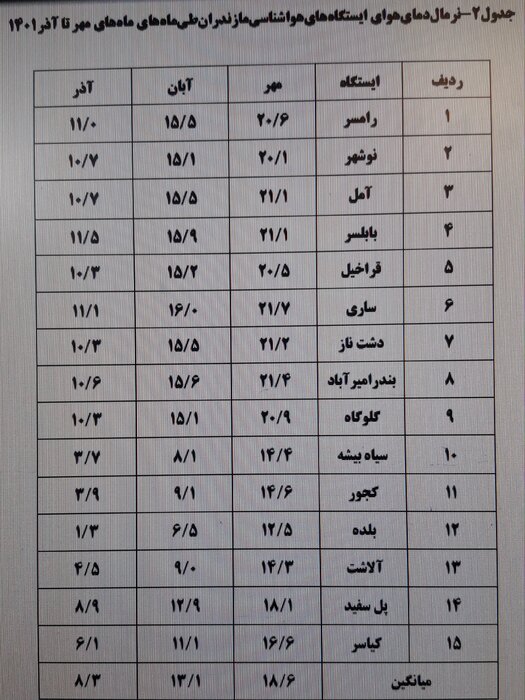 جدول۲-نرمال‌دمای‌هوای ایستگاه‌های‌هواشناسی‌مازندران‌طی‌ماه‌های ماه‌های مهر تا آذر ۱۴۰۱
ردیف ایستگاه مهر آبان آذر
۱ رامسر ۲۰/۶ ۱۵/۵ ۱۱/۰
۲ نوشهر ۲۰/۱ ۱۵/۱ ۱۰/۷
۳ آمل ۲۱/۱ ۱۵/۵ ۱۰/۷
۴ بابلسر ۲۱/۱ ۱۵/۹ ۱۱/۵
۵ قراخیل ۲۰/۵ ۱۵/۲ ۱۰/۳
۶ ساری ۲۱/۷ ۱۶/۰ ۱۱/۱
۷ دشت ناز ۲۱/۲ ۱۵/۵ ۱۰/۳
۸ بندرامیرآباد ۲۱/۴ ۱۵/۶ ۱۰/۶
۹ گلوگاه ۲۰/۹ ۱۵/۱ ۱۰/۳
۱۰ سیاه بیشه ۱۴/۴ ۸/۱ ۳/۷
۱۱ کجور ۱۴/۶ ۹/۱ ۳/۹
۱۲ بلده ۱۲/۵ ۶/۵ ۱/۳
۱۳ آلاشت ۱۴/۳ ۹/۰ ۴/۵
۱۴ پل سفید ۱۸/۱ ۱۲/۹ ۸/۹
۱۵ کیاسر ۱۶/۶ ۱۱/۱ ۶/۱
میانگین ۱۸/۶ ۱۳/۱ ۸/۳